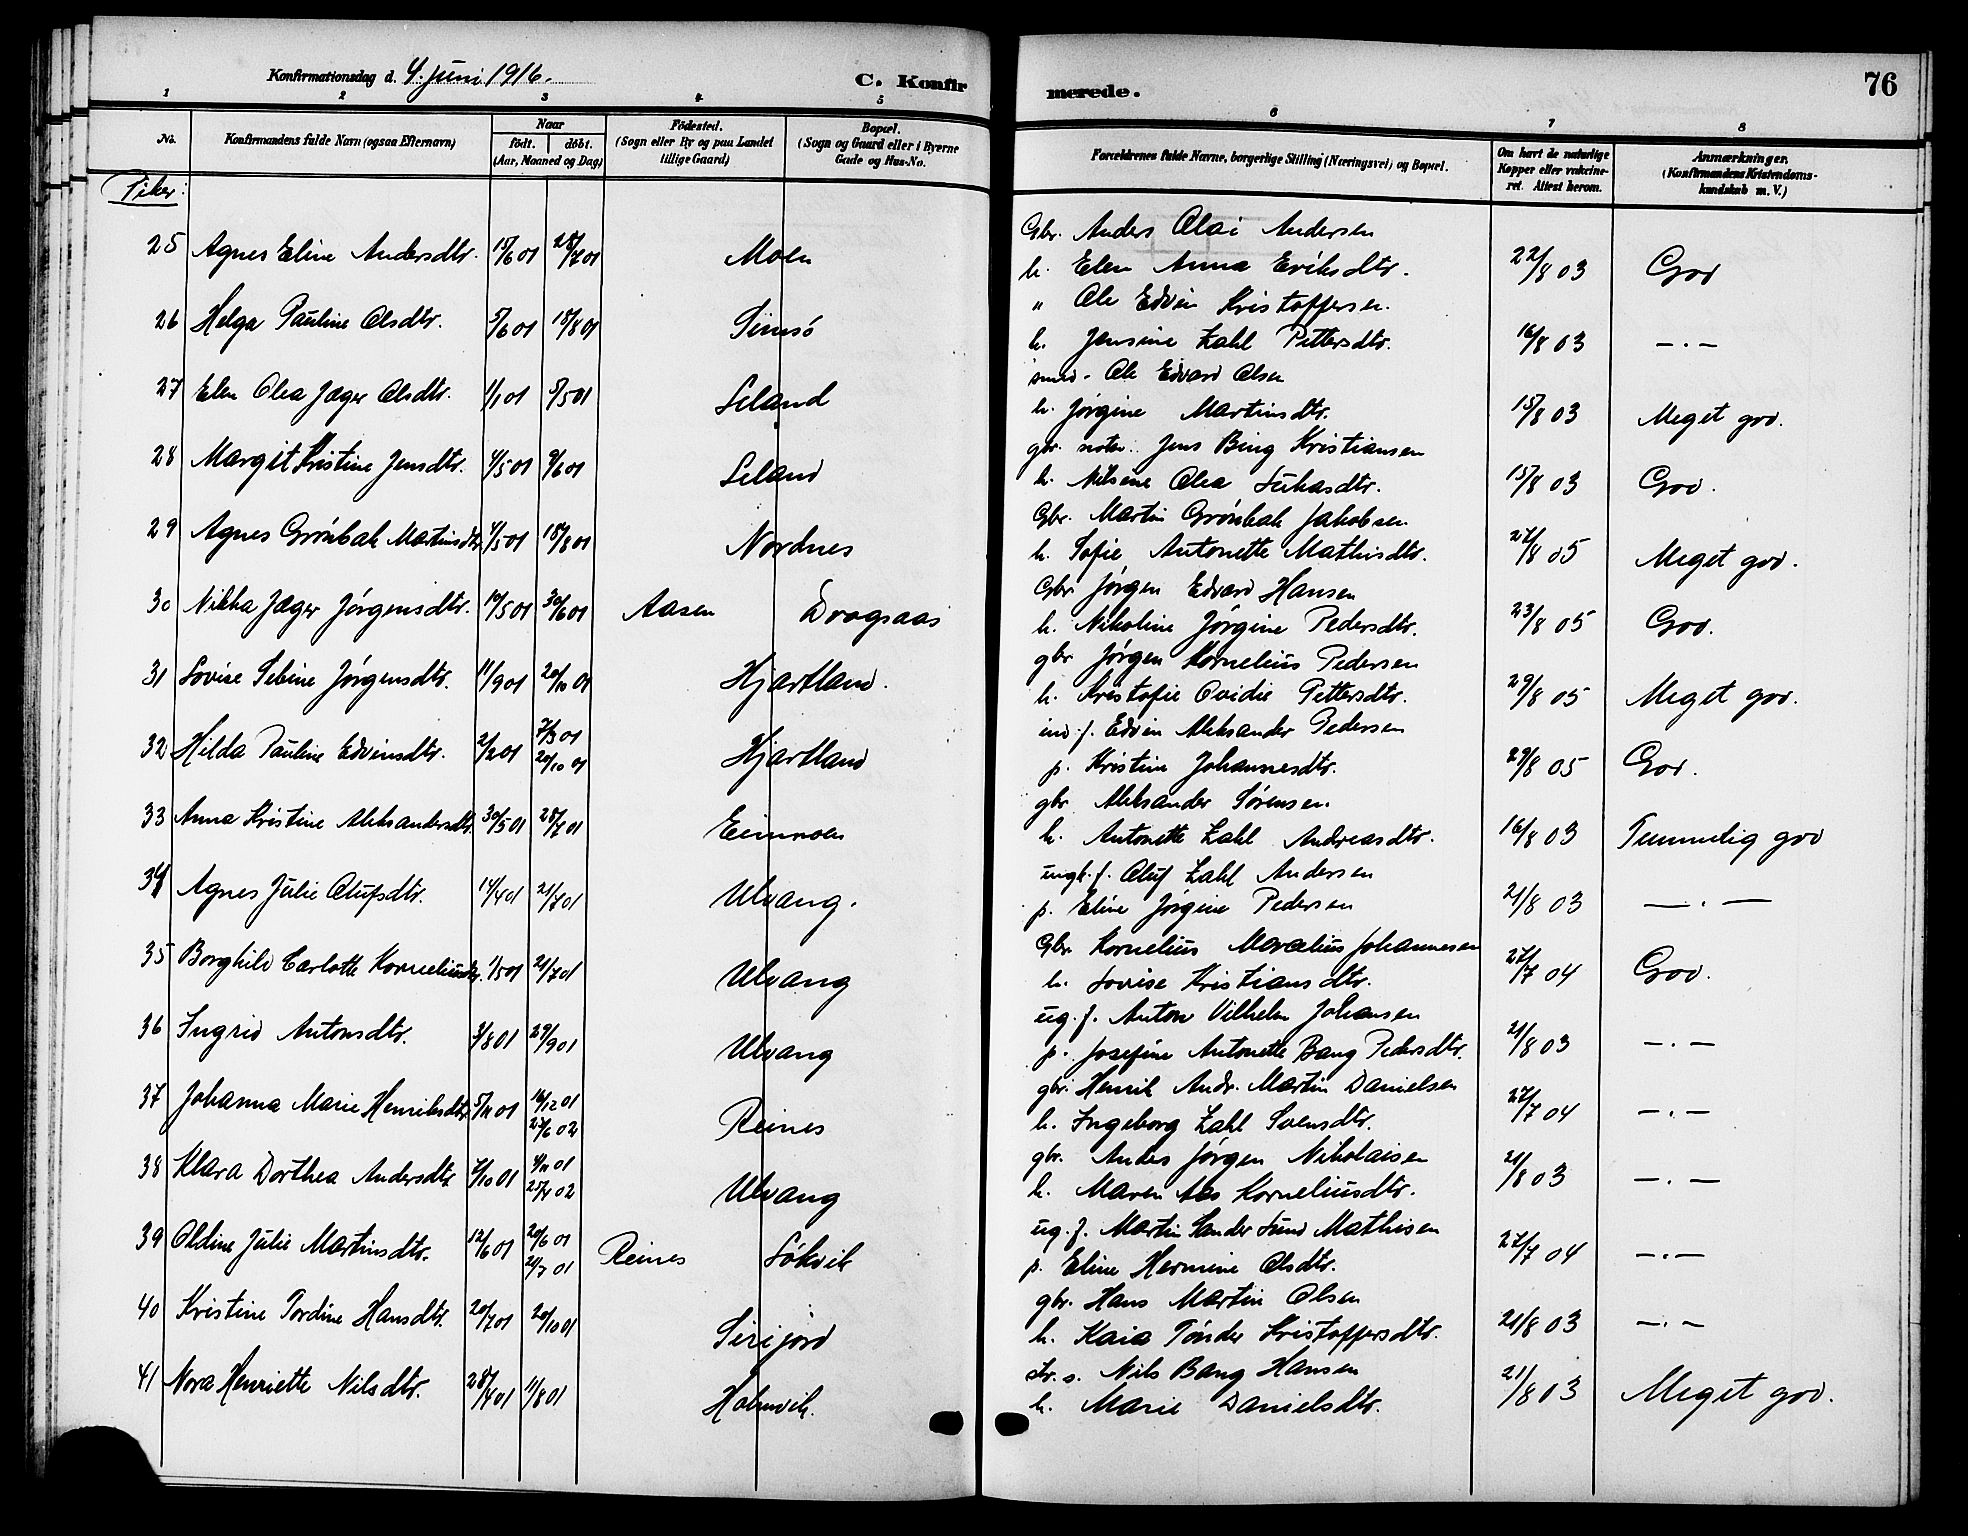 Konfirmationsdag d. 4. Juni 1916.
C. Konfirmerede.
76
1 2 3 4 5 6 7 8
No. Konfirmandens fulde Navn (ogsaa Efternavn) Naar födt. döbt. (Aar, Maaned og Dag) Födested. (Sogn eller By og paa Landet tillige Gaard) Bopæl. (Sogn og Gaard eller i Byerne Gade og Hus-No.
Forældrenes fulde Navne, borgerlige Stilling (Næringsvei) og Bopæl. Om havt de naturlige Kopper eller vakcineret. Attest herom. Anmærkninger. (Konfirmandens Kristendomskundskab m. V.)
Piker:
25 Agnes Eline Andersdtr. 15/6 01 28/7 01 Moen Gbr. Anders Olai Andersen
h. Elen Anna Eriksdtr. 22/8 03 God
26 Helga Pauline Olsdtr. 5/6 01 18/8 01 Simsö " Ole Edvin Kristoffersen.
h. Jensine Zahl Pettersdtr. 16/8 03 — . —
27 Elen Olea Jæger Olsdtr. 1/1 01 5/5 01 Leland smed. Ole Edvard Olsen
h. Jørgine Martinsdtr. 15/8 03 Meget god.
28 Margit Kristine Jensdtr. 4/5 01 9/6 01 Leland gbr. noteb. Jens Bing Kristiansen
h. Nilsine Olea Lukasdtr. 15/8 03 God.
29 Agnes Grönbak Martinsdtr. 4/5 01 18/8 01 Nordnes Gbr. Martin Grönbak Jakobsen
h. Sofie Antonette Mathisdtr. 27/8 05 Meget god.
30 Nikka Jæger Jørgensdtr. 19/5 01 30/6 01 Aasen Draagsaas Gbr Jørgen Edvard Hansen
h. Nikoline Jørgine Pedersdtr. 23/8 05 God.
31 Lovise Sebine Jørgensdtr. 11/9 01 20/10 01 Hjartland. gbr Jørgen Kornelius Pedersen
h. Kristofie Ovidie Pettersdtr. 29/8 05 Meget god.
32 Hilda Pauline Edvinsdtr. 2/2 01 7/3 01 20/10 01 Hjartland ind.f. Edvin Aleksander Pedersen
p. Kristine Johannesdtr. 29/8 05 God.
33 Anna Kristine Aleksandersdtr. 30/5 01 28/7 01 Einmoen gbr Aleksander Sørensen
h. Antonette Zahl Andreasdtr. 16/8 03 Temmelig god
34 Agnes Julie Olufsdtr. 14/4 01 21/7 01 Ulvang. ungk.f. Oluf Zahl Andersen
p. Eline Jørgine Pedersen 21/8 03 — . —
35 Borghild Carlotte Korneliusdtr. 1/5 01 21/7 01 Ulvang Gbr Kornelius Marcelius Johannesen
h. Lovise Kristiansdtr. 27/7 04 God.
36 Ingrid Antonsdtr. 3/8 01 29/9 01 Ulvang ug.f. Anton Vilhelm Johansen
p. Josefine Antonette Bang Pedersdtr. 21/8 03 — . —
37 Johanna Marie Henriksdtr 5/11 01 16/12 01 27/6 02 Reines gbr. Henrik Andr. Martin Danielsen
h. Ingeborg Zahl Svensdtr. 27/7 04 — . —
38 Klara Dorthea Andersdtr 7/10 01 4/11 01 25/4 02 Ulvang gbr. Anders Jørgen Nikolaisen
h. Maren Aas Korneliusdtr. 21/8 03 — . —
39 Oldine Julie Martinsdtr. 12/6 01 20/6 01 21/7 01 Reines Lökvik ug.f. Martin Sander Lund Mathisen
p. Eline Hermine Olsdtr. 27/7 04 — . —
40 Kristine Tordine Hansdtr. 20/7 01 20/10 01 Sirijord gbr. Hans Martin Olsen
h. Kaia Tönder Kristoffersdtr. 21/8 03 — . —
41 Nora Henriette Nilsdtr. 28/4 01 11/8 01 Holmvik. str.s. Nils Bang Hansen
h. Marie Danielsdtr. 21/8 03 Meget god.